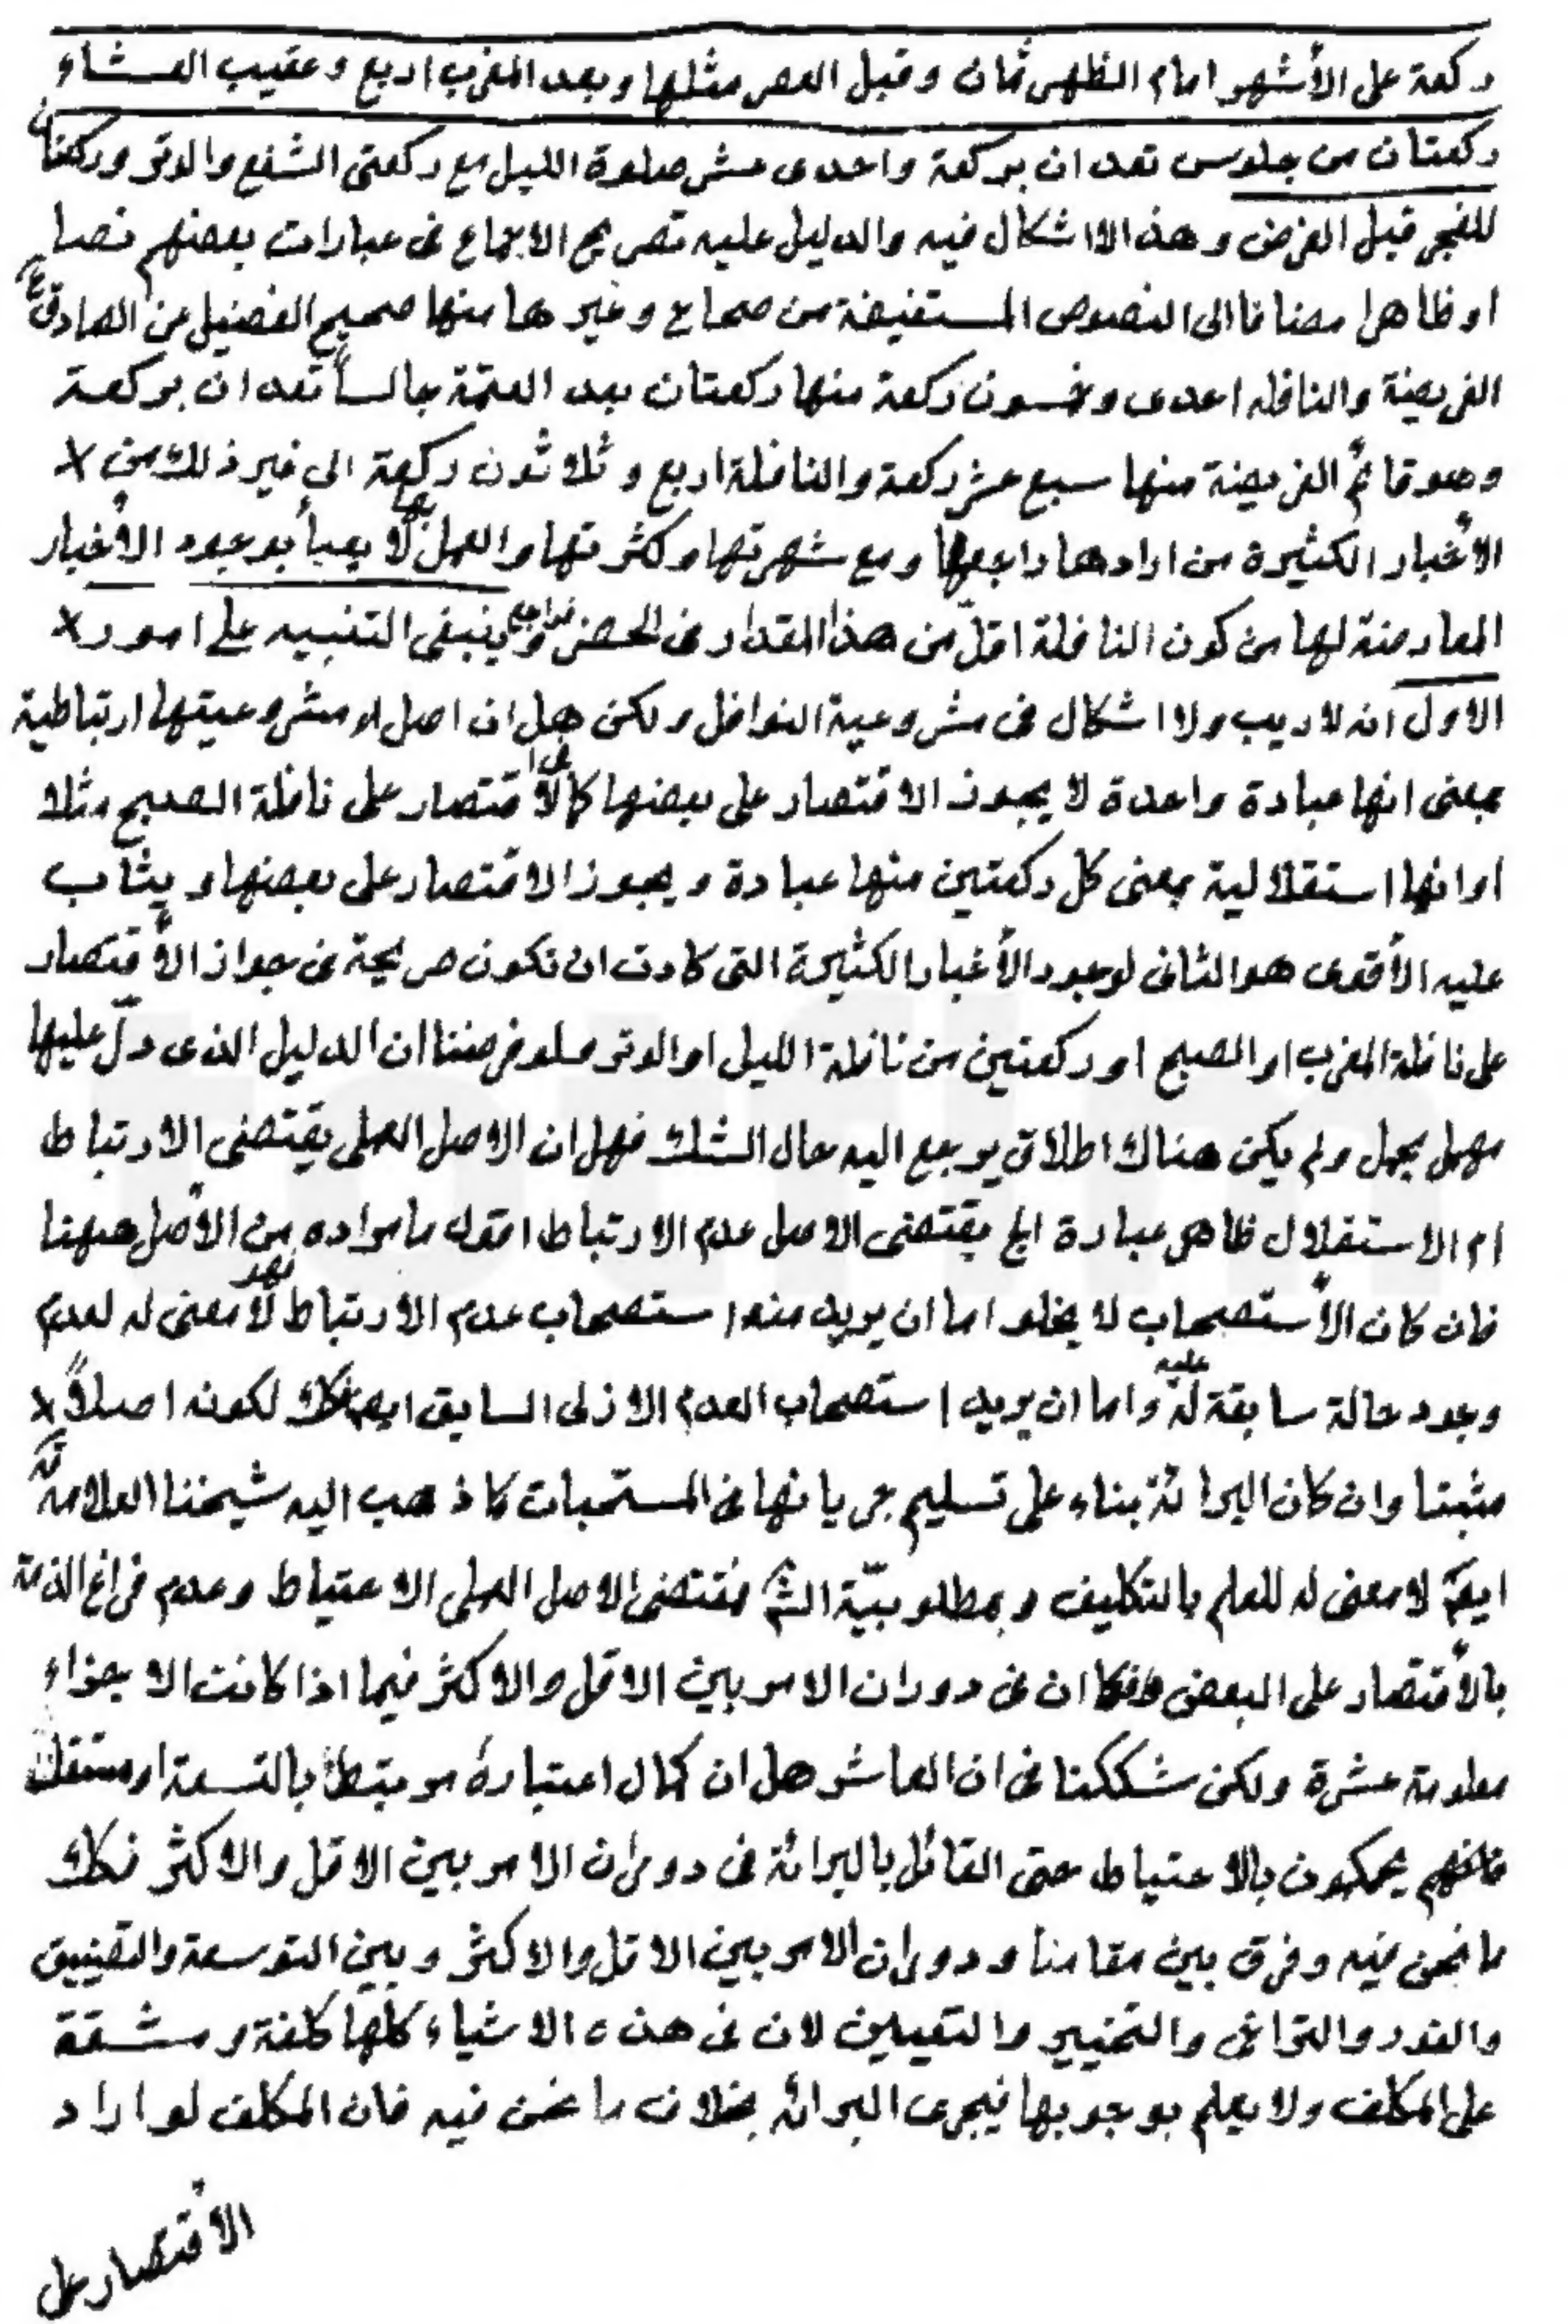 ركعة على الأشهر امام الظهر ثمان وقبل العصر مثلها وبعد المغرب اربع وعقيب العشاء
ركعتان من جلوس تعدان بركعة واحدى عشر صلوة الليل مع ركعتى الشفع والوتر وركعتان
للفجر قبل الفرض وهذا لا اشكال فيه والدليل عليه تصريح الاجماع فى عبارات بعضهم نصا
او ظاهرا مضافا الى النصوص المستفيضة من صحاح وغيرها منها صحيح الفضيل عن الصادق ع
الفريضة والنافلة احدى وخمسون ركعة منها ركعتان بعد العتمة جالساً تعدان بركعة
وهو قائم الفريضة منها سبع عشر ركعة والنافلة اربع وثلاثون ركعة الى غير ذلك من x
الأخبار الكثيرة من ارادها راجعها ومع شهرتها وكثرتها والعمل بها لا يعبأ بوجود الأخبار
المعارضة لها من كون النافلة اقل من هذا المقدار فى الحضر فراجع وينبغى التنبيه على امور x
الاول انه لا ريب ولا اشكال فى مشروعية النوافل ولكن هل ان اصل مشروعيتها ارتباطية
بمعنى انها عبادة واحدة لا يجوز الاقتصار على بعضها كالاقتصار على نافلة الصبح مثلا
او انها استقلالية بمعنى كل ركعتين منها عبادة ويجوز الاقتصار على بعضها ويثاب
عليه الأقوى هو الثانى لوجود الأخبار الكثيرة التى كادت ان تكون صريحة فى جواز الأقتصار
على نافلة المغرب او الصبح او ركعتين من نافلة الليل او الوتر فلو فرضنا ان الدليل الذى دلّ عليها
مهمل مجمل ولم يكن هناك اطلاق يرجع اليه حال الشك فهل ان الاصل العملى يقتضى الارتباط
ام الاستقلال ظاهر عبارة الج يقتضى الاصل عدم الارتباط اقول ما مراده من الأصل هيهنا
فان كان الأستصحاب لا يخلو اما ان يريد منه استصحاب عدم الارتباط فهو لا معنى له لعدم
وجود حالة سابقة له عليه واما ان يريد استصحاب العدم الازلى السابق ايضا كك لكونه اصلاً x
مثبتا وان كان البرائة بناء على تسليم جريانها فى المستحبات كما ذهب اليه شيخنا العلامة قده
ايضا لا معنى له للعلم بالتكليف وبمطلوبيّة الشئ فمقتضى الاصل العملى الاحتياط وعدم فراغ الذمة
بالأقتصار على البعض فكما ان فى دوران الامر بين الاقل والاكثر فيما اذا كانت الاجزاء
معلومة عشرة ولكن شككنا فى ان العاشر هل ان كمال اعتباره مرتبط بالتسعة او مستقل
فانهم يحكمون بالاحتياط حتى القائل بالبرائة فى دوران الامر بين الاقل والاكثر فكك
ما نحن فيه وفرق بين مقامنا ودوران الامر بين الاقل والاكثر وبين التوسعة والتضييق
والفور والتراخى والتخيير والتعيين لان فى هذه الاشياء كلها كلفة ومشقة
على المكلف ولا يعلم بوجوبها فيجرى البرائة بخلاف ما نحن فيه فان المكلف لو اراد
الأقتصار على